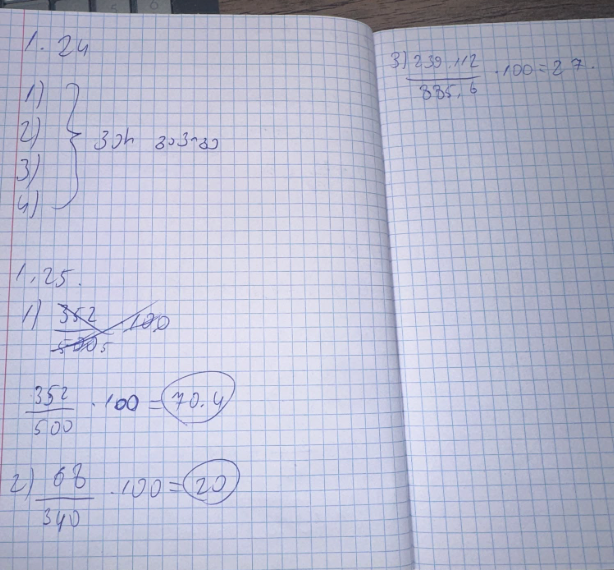 1.24
1)
2)
3)
4)
1.25.
1) 352
500
100
352
500 · 100 = 70.4
2) 68
340 · 100 = 20
3) 239.112
885.6 · 100 = 27.